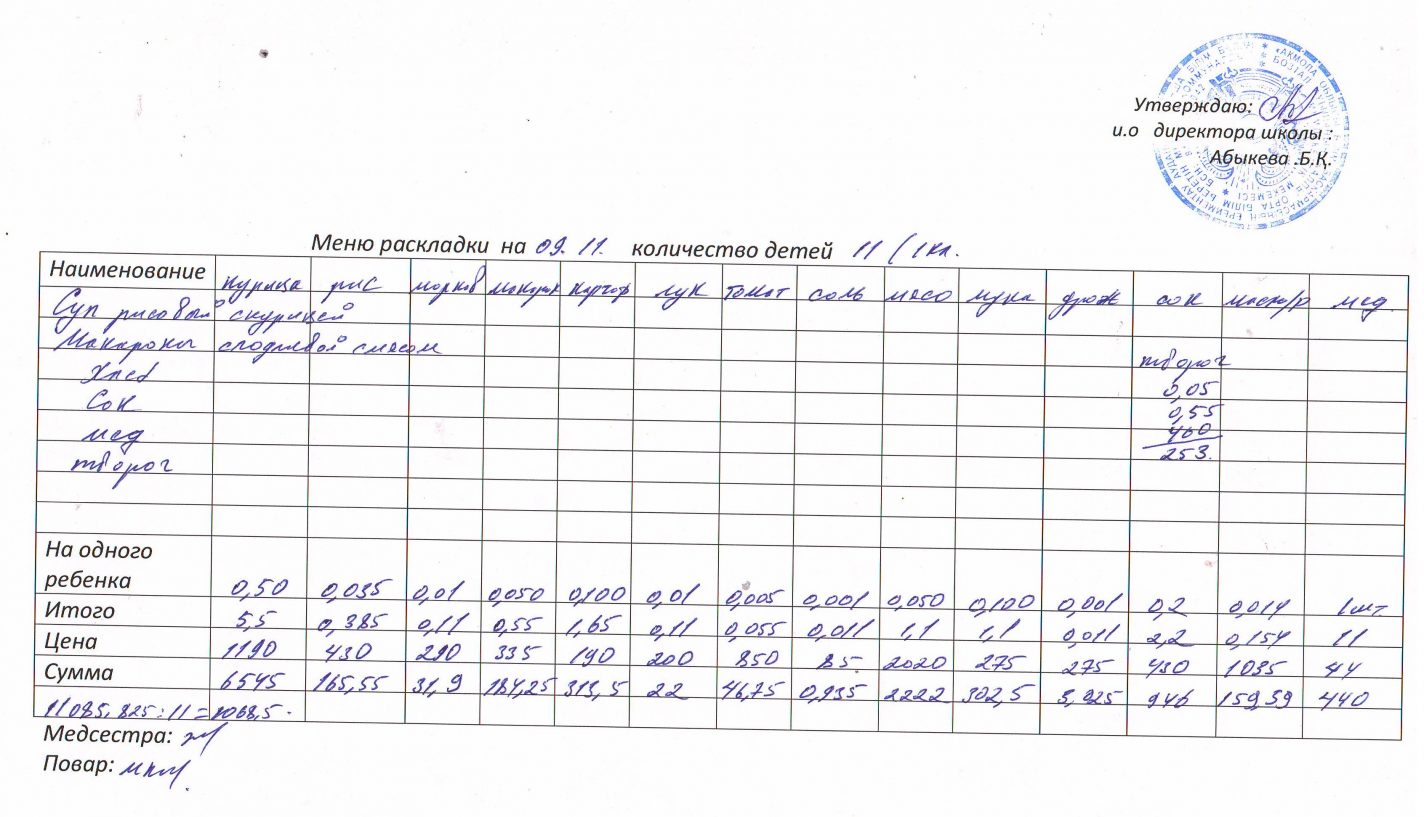 Утверждаю:
и.о директора школы :
Абыкева .Б.Қ.
Меню раскладки на 09. 11. количество детей 11 ( 1кл.
Наименование курица рис морков макарон картоф лук томат соль мясо мука дрож сок масло/р мед.
Суп рисовый с курицей
Макароны с подливой с мясом
Хлеб
Сок
мед
творог
творог
0,05
0,55
460
253.
На одного
ребенка 0,50 0,035 0,01 0,050 0,100 0,01 0,005 0,001 0,050 0,100 0,001 0,2 0,014 1шт
Итого 5,5 0,385 0,11 0,55 1,65 0,11 0,055 0,011 1,1 1,1 0,011 2,2 0,154 11
Цена 1190 430 290 335 190 200 850 85. 2020 275 275 430 1035 44
Сумма 6545 165,55 31,9 184,25 313,5 22 46,75 0,935 2222 302,5 3,025 946 159,39 440
11085,825:11=1068,5.
Медсестра:
Повар: